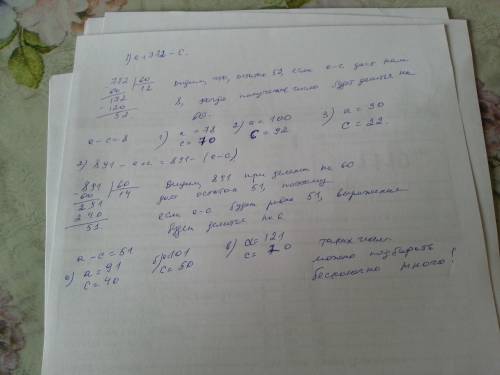 1) a + 772 - c.
772 | 60
60 | 12
- 172
- 120
52
видим, что, остаток 52, если a-c даст нам
8, тогда полученное число будет делится на
60.
a - c = 8
1) a = 78
c = 70
2) a = 100
c = 92
3) a = 30
c = 22.
2) 891 - a + c = 891 - (a-c)
- 891 | 60
60 | 14
- 291
240
51
Видим, 891 при делении на 60
даёт остаток 51, поэтому
если a-c будет равно 51, выражение
будет делится на
a - c = 51
а) a = 91
c = 40
б) a = 101
c = 50
в) a = 121
c = 70
таких чисел
можно подбирать
бесконечно много!